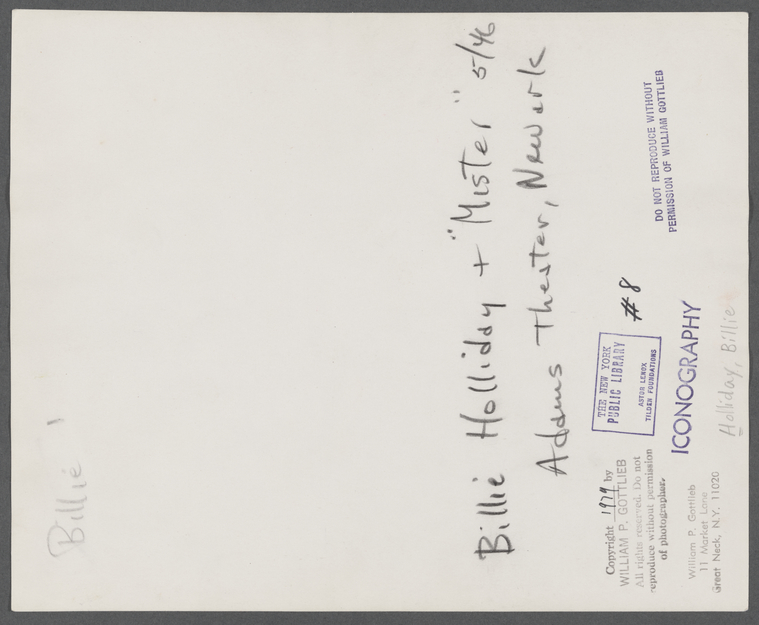 Billie
Billie Holliday + "Mister" 5/46
Adams Theater, Newark
#8
DO NOT REPRODUCE WITHOUT
PERMISSION OF WILLIAM GOTTLIEB
THE NEW YORK
PUBLIC LIBRARY
ASTOR LENOX
TILDEN FOUNDATIONS
ICONOGRAPHY
Copyright 1979 by
WILLIAM P. GOTTLIEB
All rights reserved. Do not
reproduce without permission
of photographer.
William P. Gottlieb
11 Market Lane
Great Neck, N.Y. 11020
Holliday, Billie